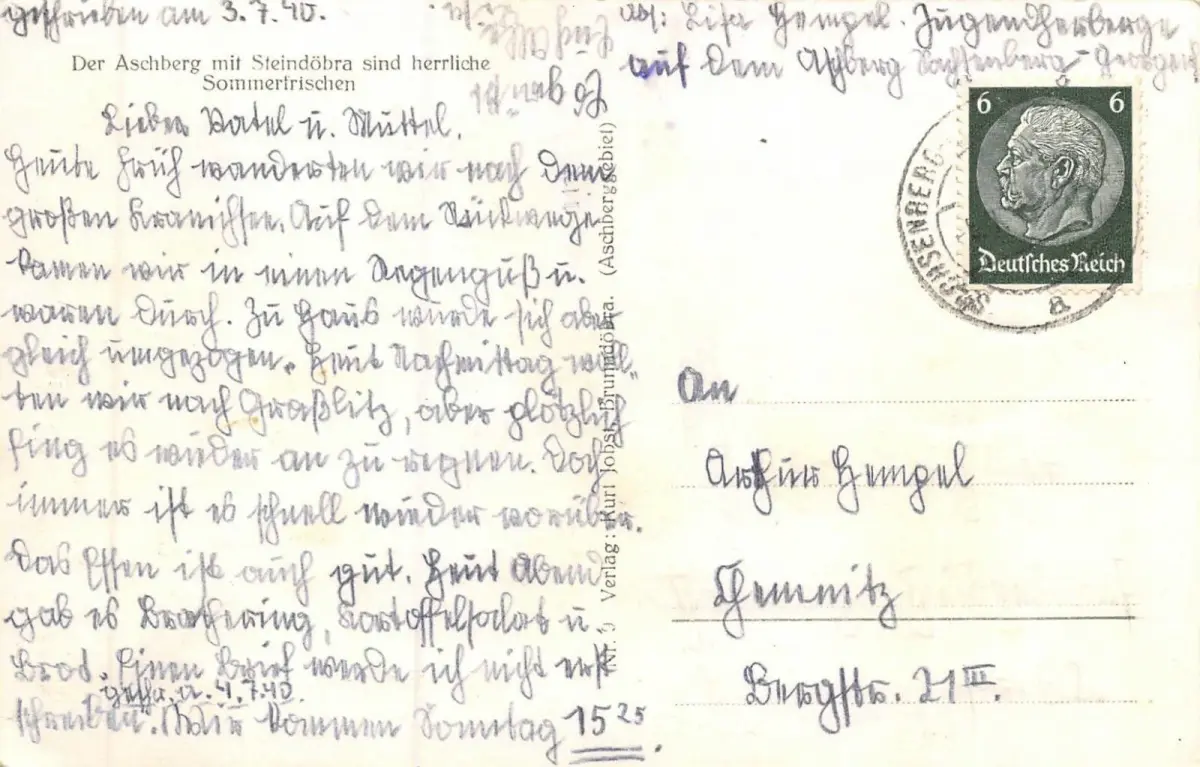 geschrieben am 3.7.40.
Abs: Lisa Hempel. Jugendherberge
auf dem Aschberg Sachsenberg-Georgen
Der Aschberg mit Steindöbra sind herrliche
Sommerfrischen
Lieber Vatel u. Muttel.
Heute früh wanderten wir nach dem
großen Kranichsee. Auf dem Rückwege
kamen wir in einen Regenguß u.
waren durch. Zu Haus wurde sich aber
gleich umgezogen. Heut Nachmittag woll-
ten wir nach Graßlitz, aber plötzlich
fing es wieder an zu regnen. Doch
immer ist es schnell wieder vorüber.
Das Essen ist auch gut. Heut Abend
gab es Brathering, Kartoffelsalat u.
Brot. Einen Brief werde ich nicht erst
geschr. a. 4.7.40.
schreiben. (Wir kommen Sonntag 15 25.
(Nr. ) Verlag: Kurt Jobst, Brunndöbra. (Aschberggebiet)
6 6
Deutsches Reich
SACHSENBERG
a
An
Arthur Hempel
Chemnitz
Bergstr. 21 III.